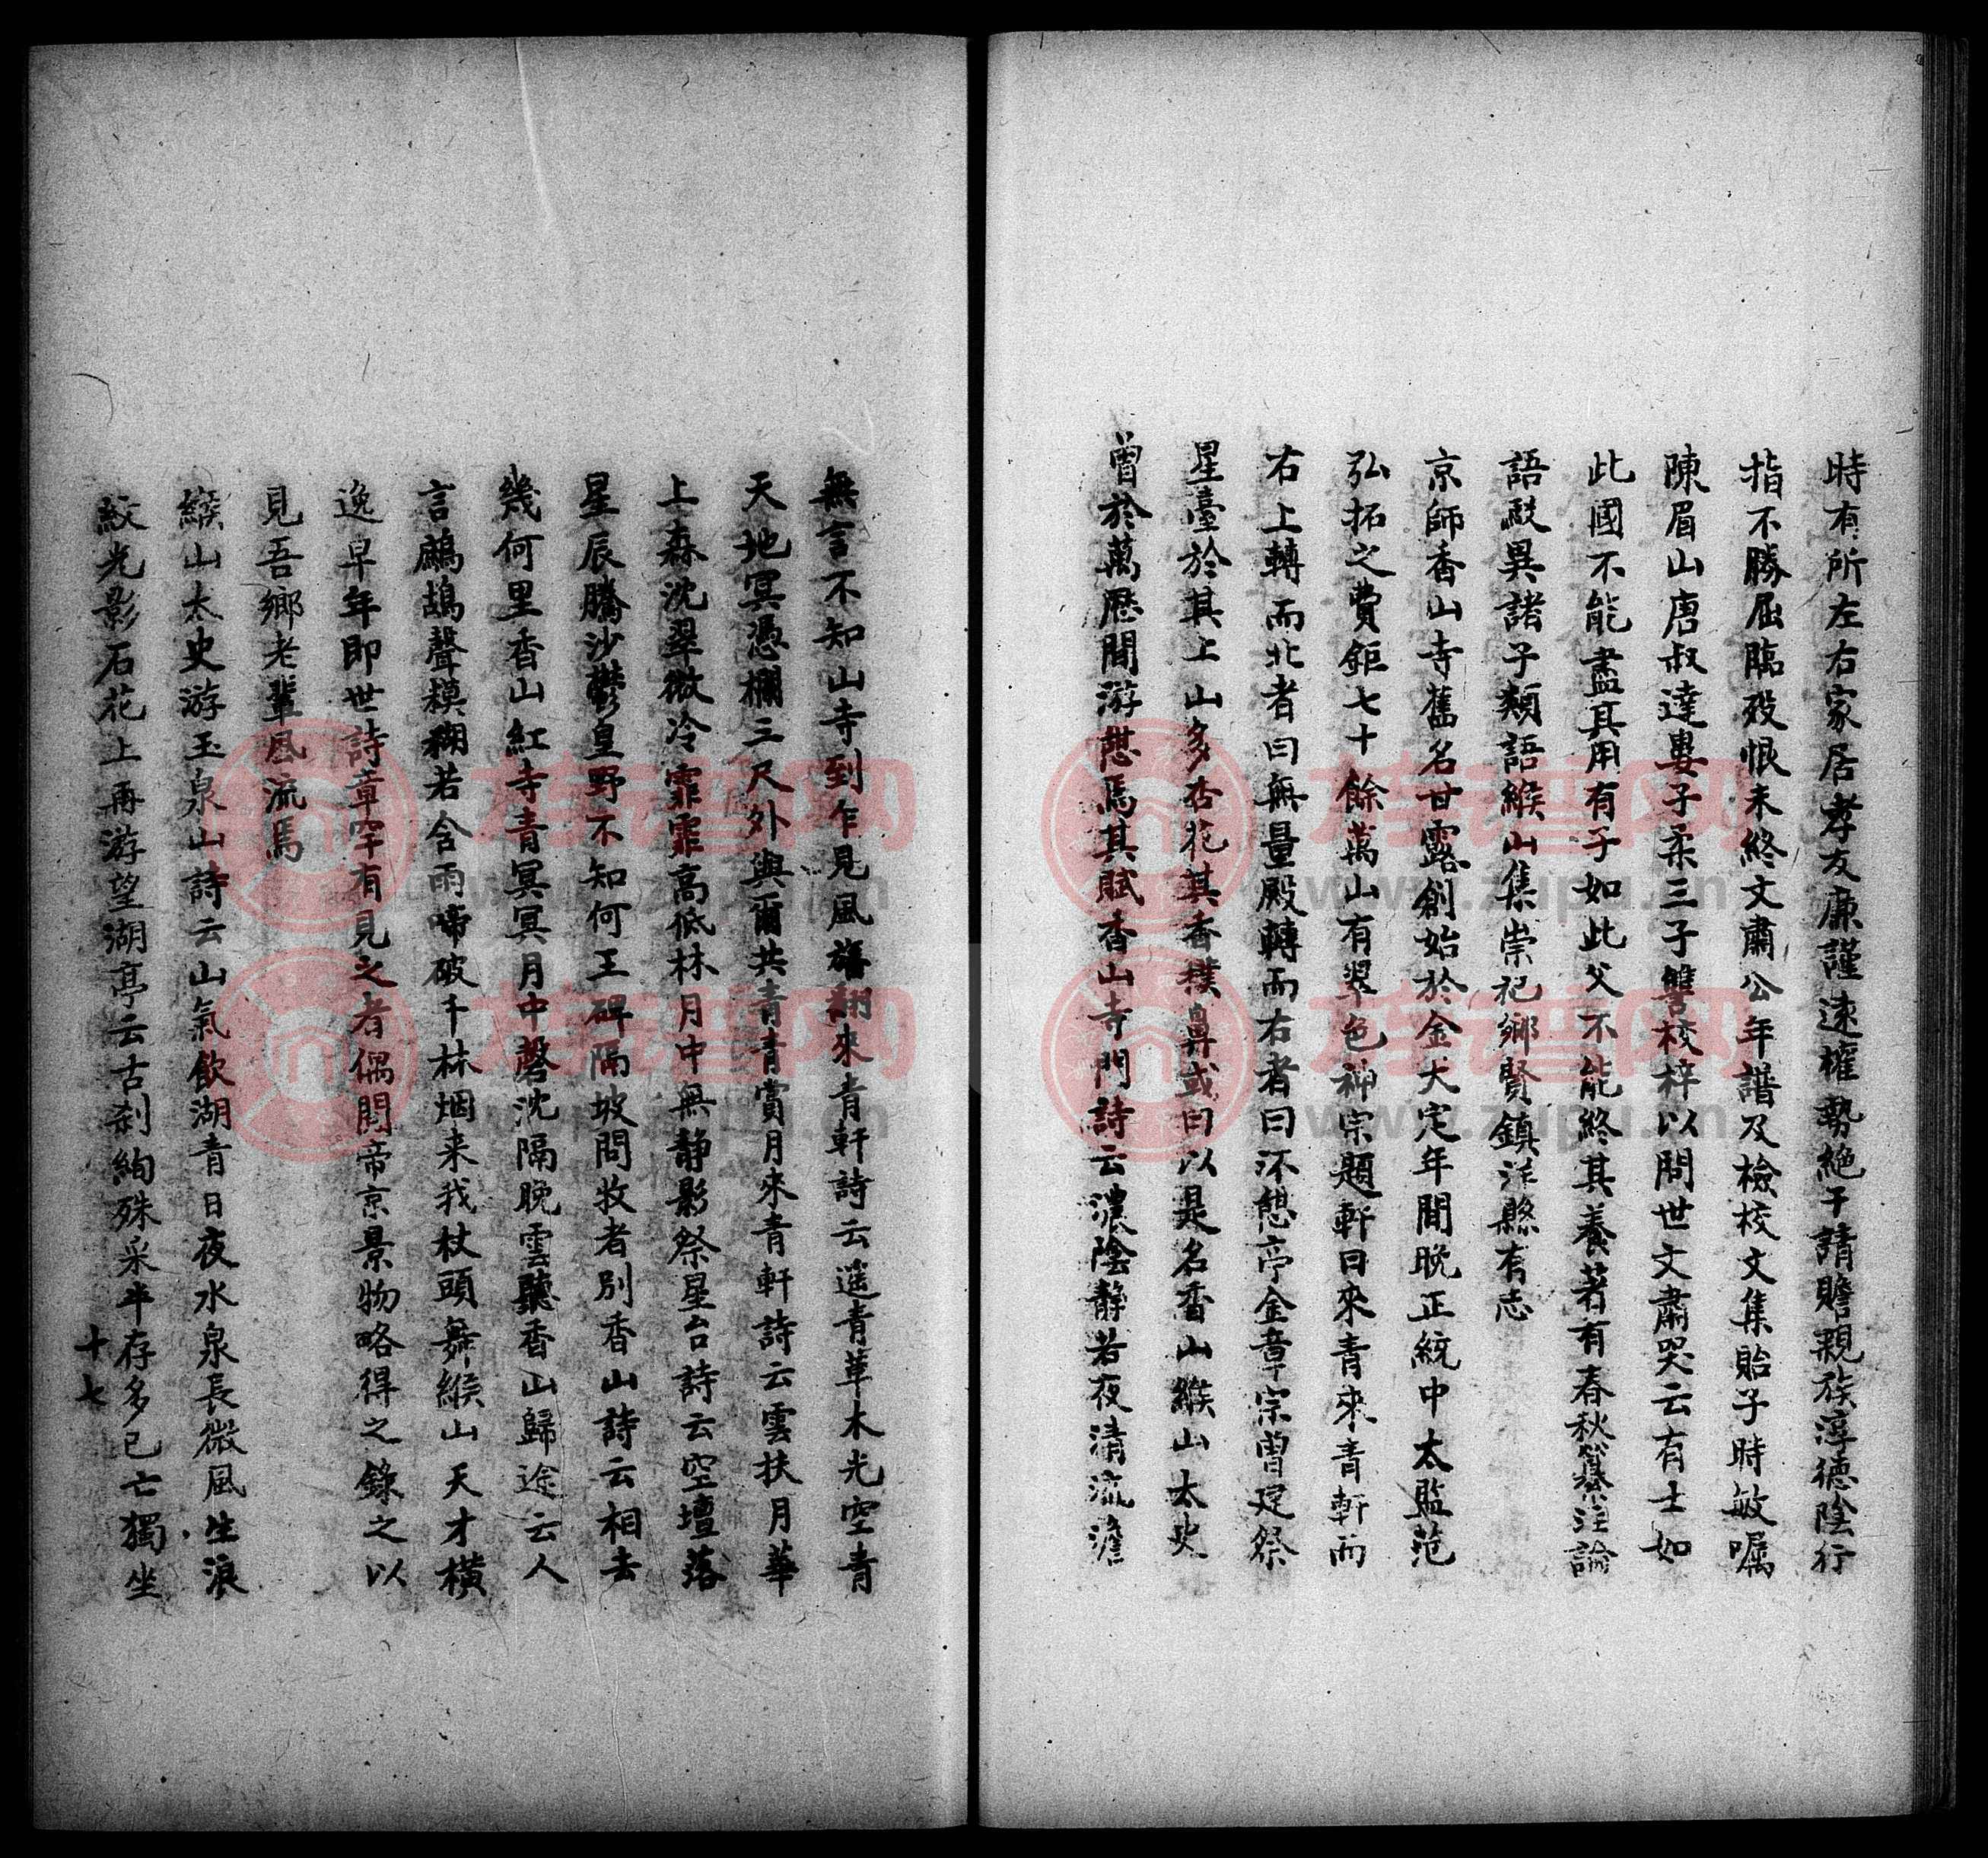 時有所左右家居孝友廉謹遠權勢絶干請贍親族淳德陰行
指不勝屈臨殁恨未終文肅公年譜及檢校文集貽子時敏囑
陳眉山唐叔達婁子柔三子讐校梓以問世文肅哭云有士如
此國不能盡其用有子如此父不能終其養著有春秋纂注論
語駁異諸子類語緱山集崇祀鄉賢鎮洋縣有志
京師香山寺舊名甘露創始於金大定年間晚正統中太監范
弘拓之費鉅七十餘萬山有翠色神宗題軒曰來青來青軒而
右上轉而北者曰無量殿轉而右者曰流憩亭金章宗曾建祭
星臺於其上山多杏花其香撲鼻或曰以是名香山緱山太史
曾於萬歷間游憩焉其賦香山寺門詩云濃陰静若夜清流澹
無言不知山寺到乍見風旛翻來青軒詩云遥青草木光空青
天地冥憑欄三尺外與爾共青青賞月來青軒詩云雲扶月華
上森沈翠微冷霏霏高低林月中無静影祭星台詩云空壇落
星辰騰沙鬱皇野不知何王碑隔坡問牧者別香山詩云相去
幾何里香山紅寺青冥冥月中磬沈隔晚雲聽香山歸途云人
言鷓鴣聲模糊若含雨啼破千林烟来我杖頭舞緱山天才橫
逸早年即世詩章罕有見之者偶閱帝京景物略得之錄之以
見吾鄉老輩風流焉
緱山太史游玉泉山詩云山氣飲湖青日夜水泉長微風生浪
紋光影石花上再游望湖亭云古刹絢殊采半存多已亡獨坐
十七
www.zupu.cn
www.zupu.cn
www.zupu.cn
www.zupu.cn